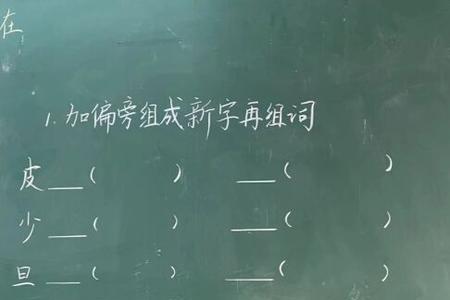 在
1.加偏旁组成新字再组词
皮___( ) ___( )
少___( ) ___( )
旦___( ) ___( )